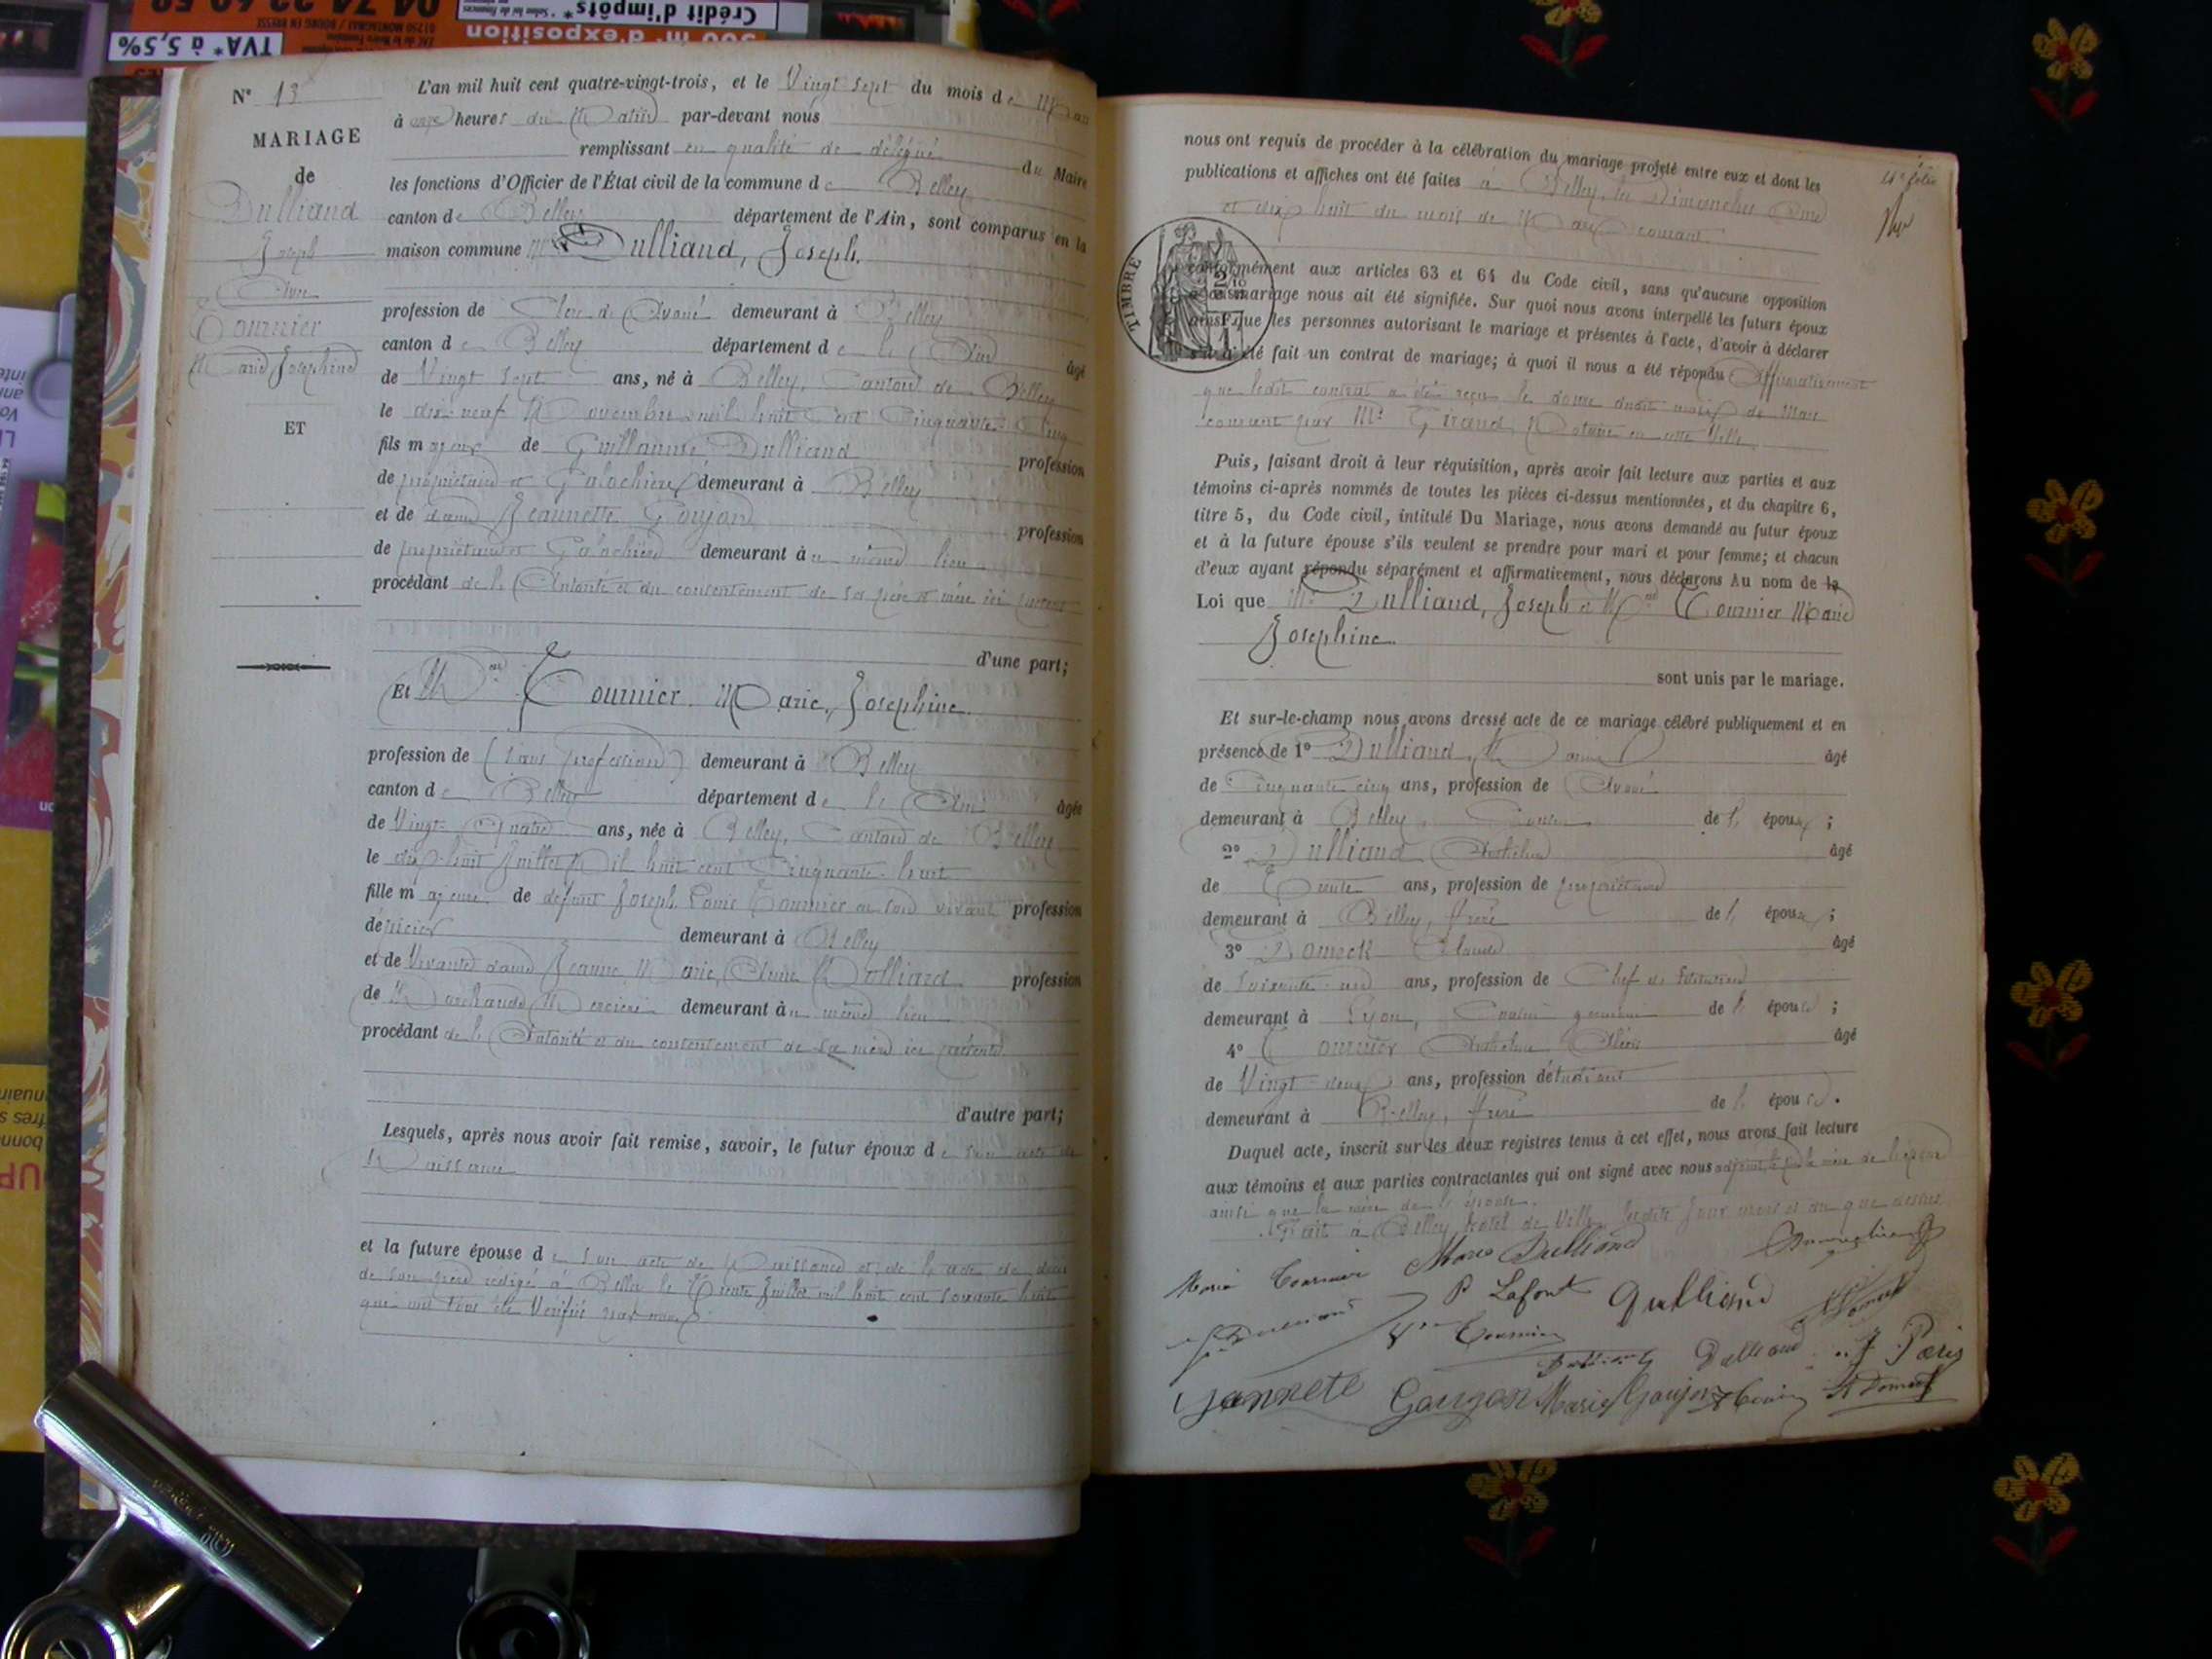 N° 13
MARIAGE
de
Dulliand
Joseph
Tournier
Marie Josephine
ET
L'an mil huit cent quatre-vingt-trois, et le Vingt sept du mois de Mars
à onze heures du Matin par-devant nous
remplissant en qualité de délégué du Maire
les fonctions d'Officier de l'État civil de la commune de Belley
canton de Belley département de l'Ain, sont comparus en la
maison commune Mr Dulliand, Joseph.
profession de Clerc d'Avoué demeurant à Belley
canton de Belley département de l'Ain âgé
de Vingt sept ans, né à Belley, Canton de Belley
le dix-neuf Novembre mil huit Cent Cinquante Cinq
fils majeur de Guillaume Dulliand profession
de propriétaire et Galochier demeurant à Belley
et de dame Jeannette Goujon profession
de propriétaire et Galochière demeurant au même lieu
procédant de l'Autorité et du consentement de ses père et mère ici présents
d'une part;
Et Tournier Marie, Josephine.
profession de (sans profession) demeurant à Belley
canton de Belley département de l'Ain âgée
de Vingt-Quatre ans, née à Belley, Canton de Belley
le dix-huit Juillet Mil huit cent Cinquante-huit
fille majeure de défunt Joseph Louis Tournier en son vivant profession
d'épicier demeurant à Belley
et de Vivante dame Jeanne Marie, profession
de Marchande Mercière demeurant au même lieu
procédant de l'Autorité et du consentement de sa mère ici présente
d'autre part;
Lesquels, après nous avoir fait remise, savoir, le futur époux de son acte de
Naissance
et la future épouse de son acte de Naissance et de l'acte de décès
de son père rédigé à Belley le Trente Juillet mil huit cent soixante huit
que nous avons Vérifié
nous ont requis de procéder à la célébration du mariage projeté entre eux et dont les
publications et affiches ont été faites à Belley, les Dimanches Onze
et dix huit du mois de Mars courant
4e folio
TIMBRE
conformément aux articles 63 et 64 du Code civil, sans qu'aucune opposition
à ce mariage nous ait été signifiée. Sur quoi nous avons interpellé les futurs époux
ainsi que les personnes autorisant le mariage et présentes à l'acte, d'avoir à déclarer
s'il a été fait un contrat de mariage; à quoi il nous a été répondu Affirmativement
que ledit contrat a été reçu le douze dudit mois de Mars
courant par Me Giraud, Notaire en cette Ville
Puis, faisant droit à leur réquisition, après avoir fait lecture aux parties et aux
témoins ci-après nommés de toutes les pièces ci-dessus mentionnées, et du chapitre 6,
titre 5, du Code civil, intitulé Du Mariage, nous avons demandé au futur époux
et à la future épouse s'ils veulent se prendre pour mari et pour femme; et chacun
d'eux ayant répondu séparément et affirmativement, nous déclarons Au nom de la
Loi que Mr Dulliand, Joseph et Tournier Marie
Josephine
sont unis par le mariage.
Et sur-le-champ nous avons dressé acte de ce mariage célébré publiquement et en
présence de 1° Dulliand, âgé
de Cinquante cinq ans, profession de Avoué
demeurant à Belley, Cousin de l'époux;
2° Dulliand Anthelme âgé
de Trente ans, profession de propriétaire
demeurant à Belley, frère de l'époux;
3° Domeck Claude âgé
de Soixante ans, profession de Chef d'Institution
demeurant à Lyon, Cousin germain de l'épouse;
4° Tournier Anthelme Alexis âgé
de Vingt-deux ans, profession d'étudiant
demeurant à Belley, frère de l'épouse.
Duquel acte, inscrit sur les deux registres tenus à cet effet, nous avons fait lecture
aux témoins et aux parties contractantes qui ont signé avec nous la mère de l'époux
ainsi que la mère de l'épouse.
Fait à Belley, hôtel de Ville, lesdits jour mois et an que dessus
Marie Tournier Dulliand
P Lafont Dulliand
Vve Tournier
Dulliand J Paris
Jannete Goujon Marie Goujon